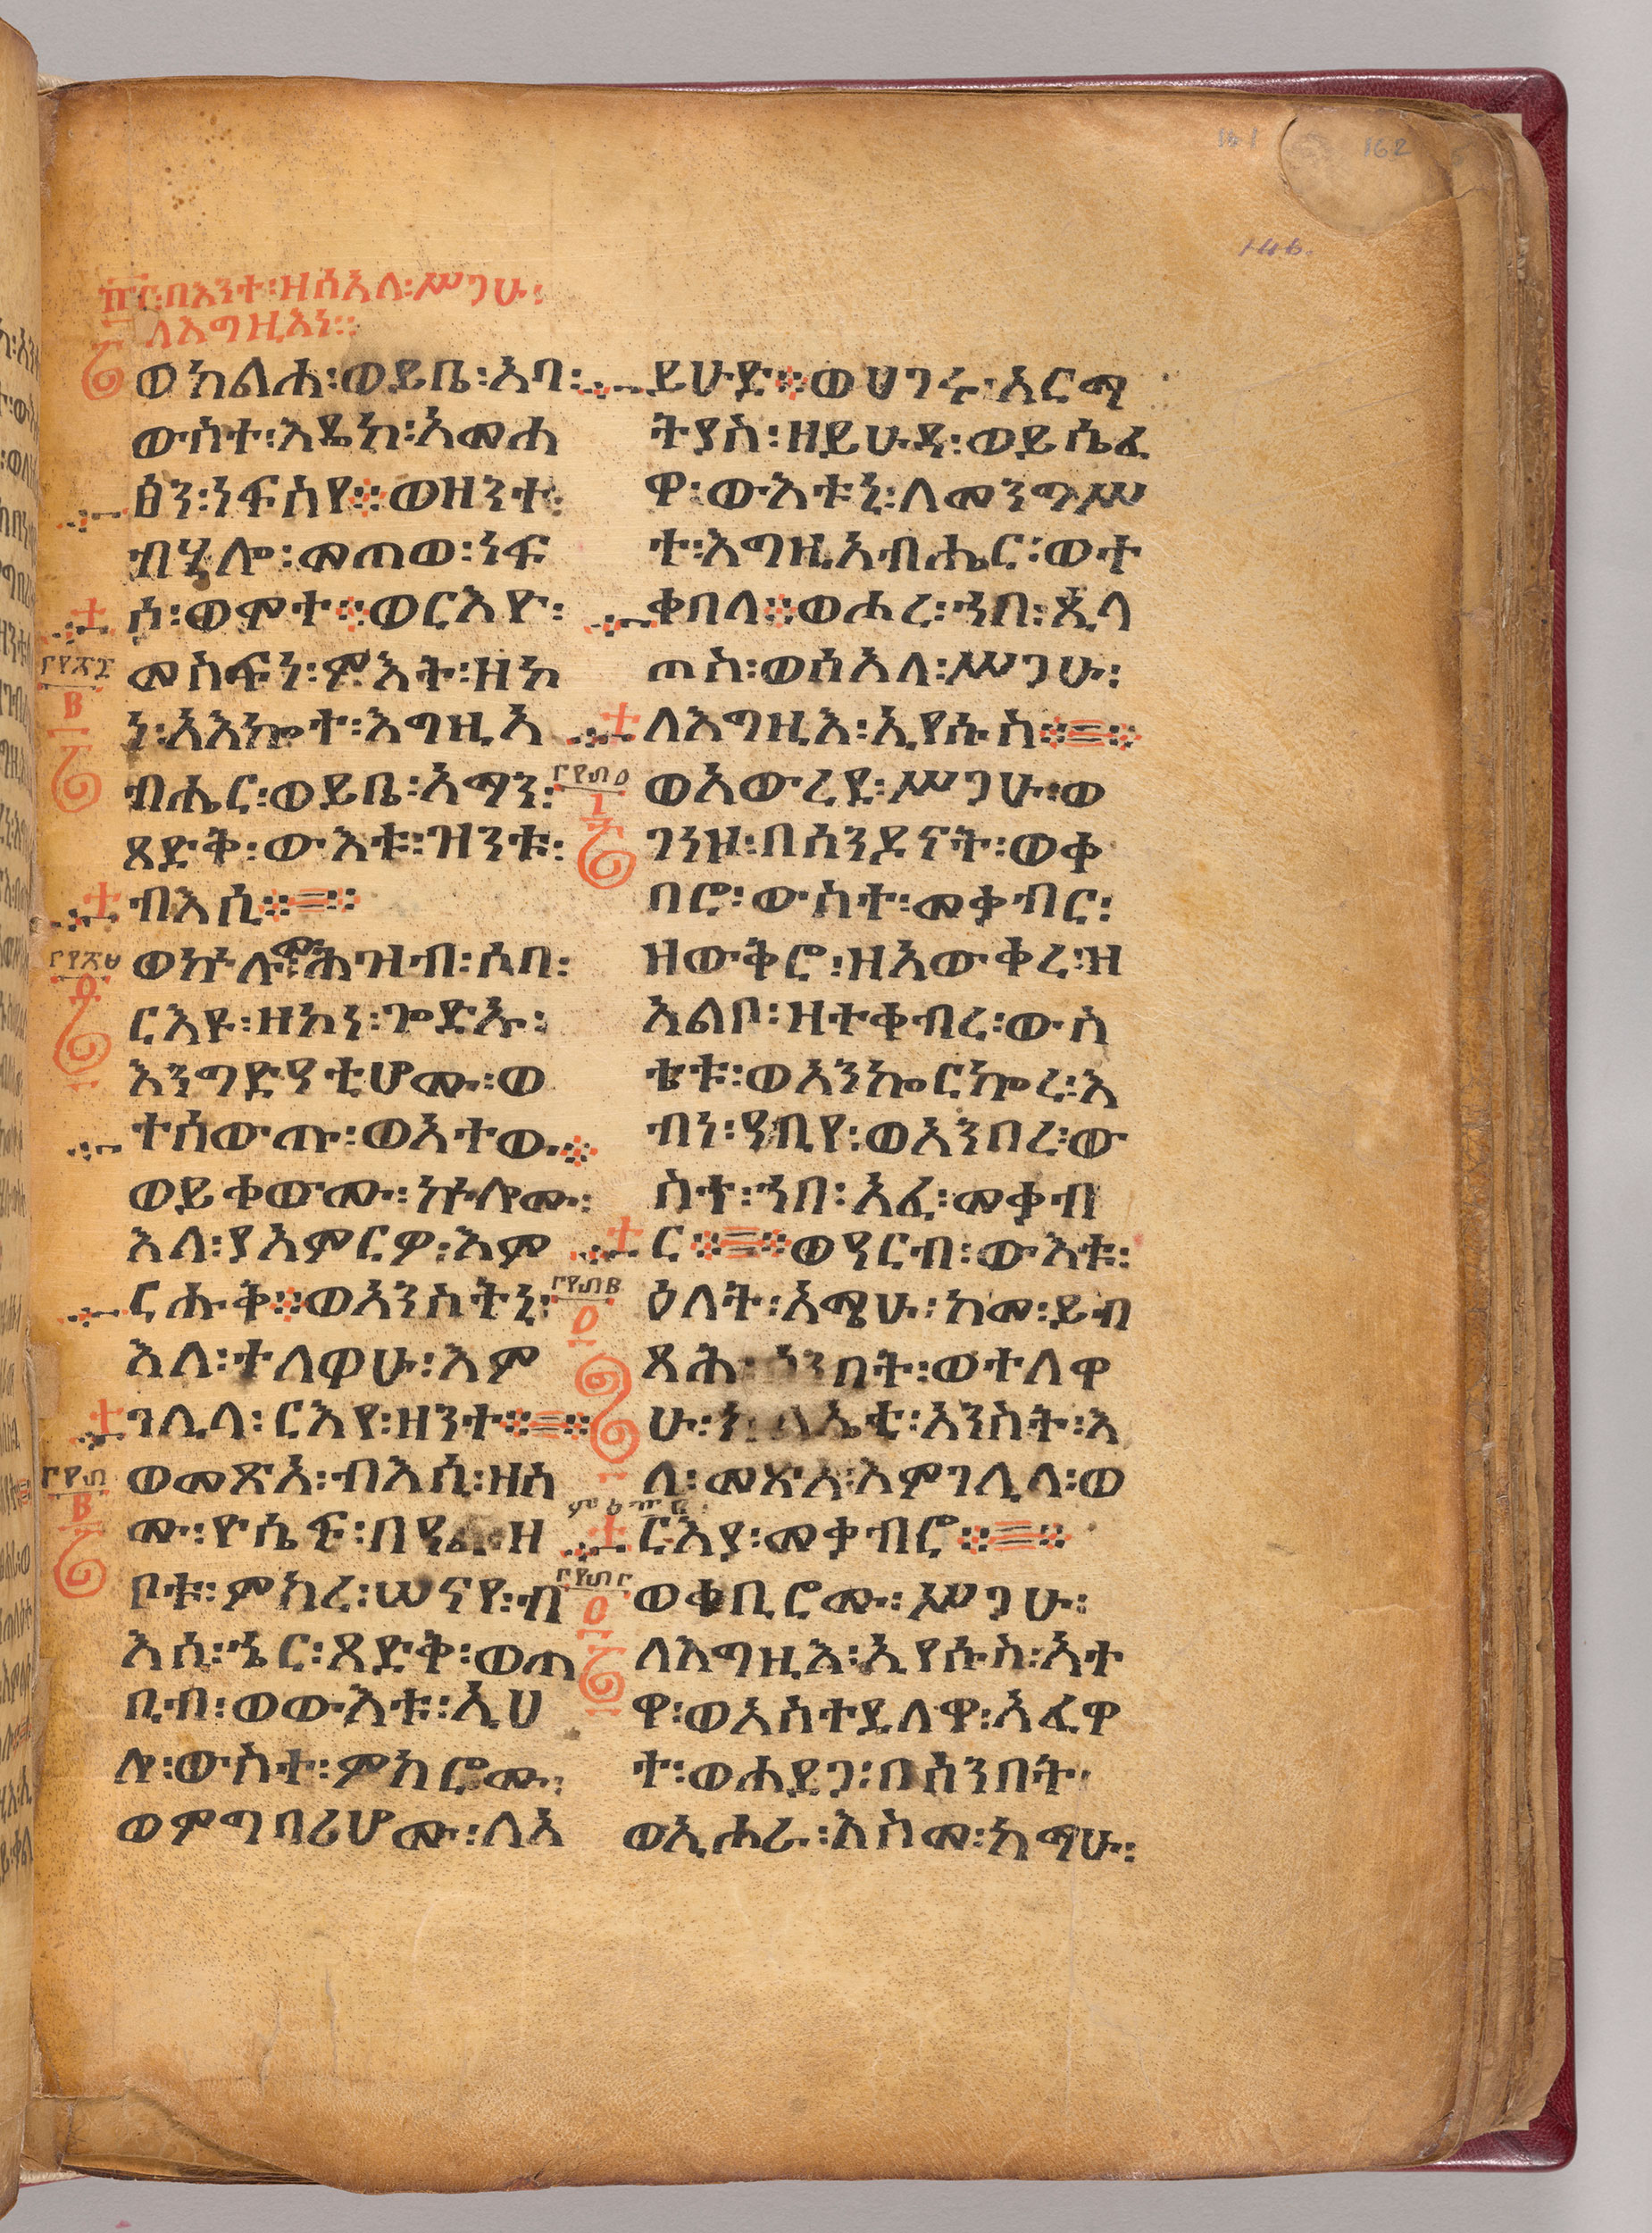 በእንተ፡ዘሰአለ፡ሥጋሁ፡
ለእግዚእነ።
ወከልሐ፡ወይቤ፡አባ፡
ውስተ፡እዴከ፡አመሐ
ፅን፡ነፍስየ።ወዘንተ፡
ብሂሎ፡መጠወ፡ነፍ
ሰ፡ወሞተ።ወርእዮ፡
መስፍነ፡ምእት፡ዘኮ
ነ፡አእኰተ፡እግዚአ
ብሔር፡ወይቤ፡አማን፡
ጻድቅ፡ውእቱ፡ዝንቱ፡
ብእሲ።=።
ወኵሎሙ፡ሕዝብ፡ሶበ፡
ርእዩ፡ዘኮነ፡ጐድኡ፡
እንግድዓቲሆሙ፡ወ
ተሰውጡ፡ወአተው።
ወይቀውሙ፡ኵሎሙ፡
እለ፡ያአምርዎ፡እም
ርሑቅ።ወአንስትኒ፡
እለ፡ተለዋሁ፡እም
ገሊላ፡ርእየ፡ዘንተ።=።
ወመጽአ፡ብእሲ፡ዘስ
ሙ፡ዮሴፍ፡በዓለ፡ዘ
ቦቱ፡ምክረ፡ሠናየ፡ብ
እሲ፡ኄር፡ጻድቅ፡ወጠ
ቢብ፡ወውእቱ፡ኢሀ
ሎ፡ውስተ፡ምክሮሙ፡
ወምግባሪሆሙ፡ለአ
ይሁድ።ወሀገሩ፡አርማ
ትያስ፡ዘይሁዳ፡ወይሴፈ
ዎ፡ውእቱኒ፡ለመንግሥ
ተ፡እግዚአብሔር፡ወተ
ቀበላ።ወሖረ፡ኀበ፡ጲላ
ጦስ፡ወሰአለ፡ሥጋሁ፡
ለእግዚእ፡ኢየሱስ።=።
ወአውረደ፡ሥጋሁ፡ወ
ገነዞ፡በሰንዶናት፡ወቀ
በሮ፡ውስተ፡መቃብር፡
ዘውቅሮ፡ዘአውቀረ፡ዝ
አልቦ፡ዘተቀብረ፡ውስ
ቴቱ፡ወአንኰርኰረ፡እ
ብነ፡ዓቢየ፡ወአንበረ፡ው
ስተ፡ኀበ፡አፈ፡መቃብ
ር።=።ወዓርብ፡ውእቱ፡
ዕለት፡አሜሁ፡ከመ፡ይብ
ጻሕ፡ሰንበት፡ወተለዋ
ሁ፡ክልኤቲ፡አንስት፡እ
ለ፡መጽአ፡እምገሊላ፡ወ
ርእያ፡መቃብሮ።=።
ወቀቢሮሙ፡ሥጋሁ፡
ለእግዚእ፡ኢየሱስ፡አተ
ዋ፡ወአስተዳለዋ፡አፈዋ
ተ፡ወሐደጋ፡በሰንበት፡
ወኢሖራ፡እስመ፡ከማሁ፡
162